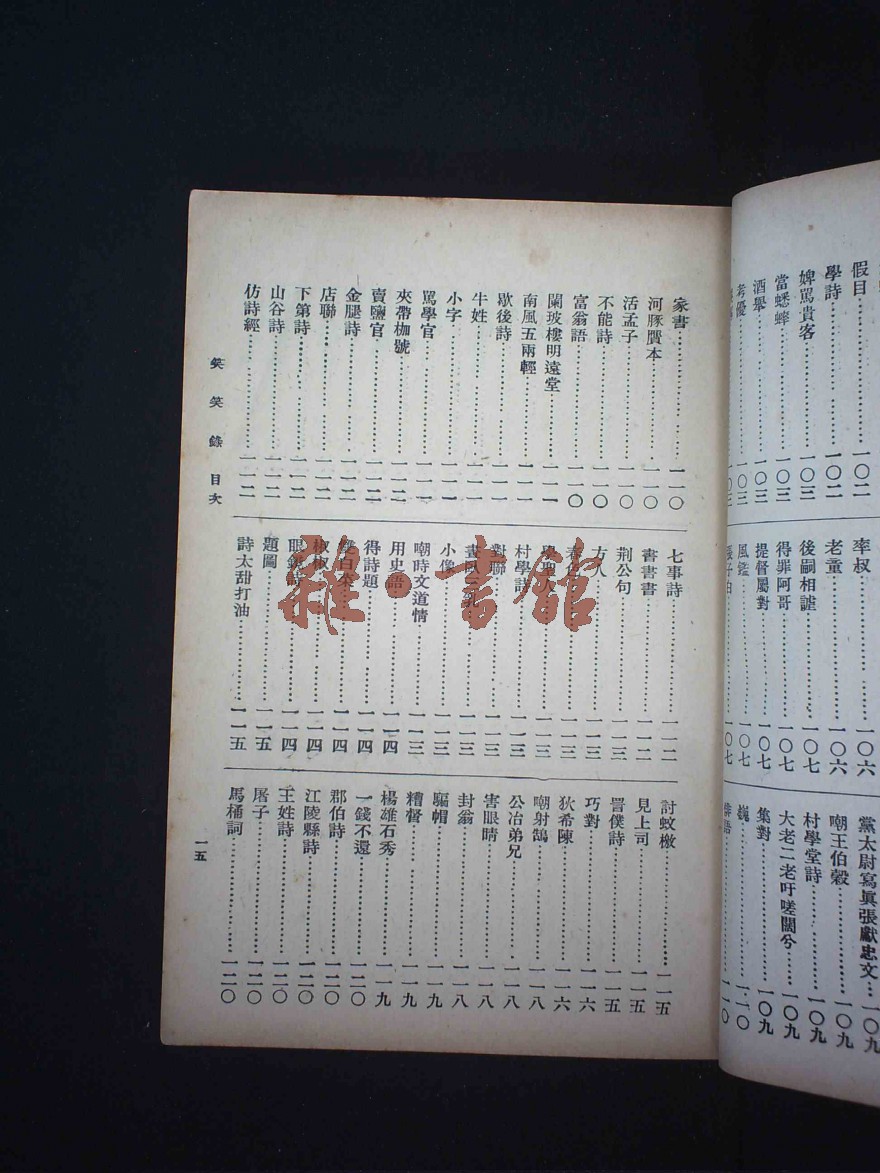 假目 一〇二
學詩 一〇二
婢罵貴客 一〇三
當蟋蟀 一〇三
酒舉 一〇三
考優 一〇三
叔 一〇六
老童 一〇六
後嗣相謔 一〇七
得罪阿哥 一〇七
提督屬對 一〇七
風鑑 一〇七
一〇七
黨太尉寫眞張獻忠文 一〇九
嘲王伯穀 一〇九
村學堂詩 一〇九
大老二老吁嗟闊兮 一〇九
集對 一〇九
巍 一一〇
語 一一〇
家書 一一〇
河豚贋本 一一〇
活孟子 一一〇
不能詩 一一〇
富翁語 一一〇
闌玻樓明遠堂 一一一
南風五兩輕 一一一
歇後詩 一一一
牛姓 一一一
小字 一一一
罵學官 一一一
夾帶枷號 一一二
賣鹽官 一一二
金腿詩 一一二
店聯 一一二
下第詩 一一二
山谷詩 一一二
仿詩經 一一二
七事詩 一一二
書書書 一一二
荆公句 一一三
方人 一一三
一一三
一一三
村學詩 一一三
對聯 一一三
畫臥 一一三
小像 一一三
嘲時文道情 一一三
用史語 一一四
得詩題 一一四
白菜 一一四
椒椒 一一四
眼鏡詩 一一四
題圖 一一五
詩太甜打油 一一五
討蚊檄 一一五
見上司 一一五
詈僕詩 一一五
巧對 一一六
狄希陳 一一六
嘲射鵠 一一八
公冶弟兄 一一八
害眼睛 一一八
封翁 一一八
驅帽 一一九
糟督 一一九
楊雄石秀 一一九
一錢不還 一二〇
郡伯詩 一二〇
江陵縣詩 一二〇
王姓詩 一二〇
屠子 一二〇
馬桶詞 一二〇
笑笑錄 目次
一五
雜·書館